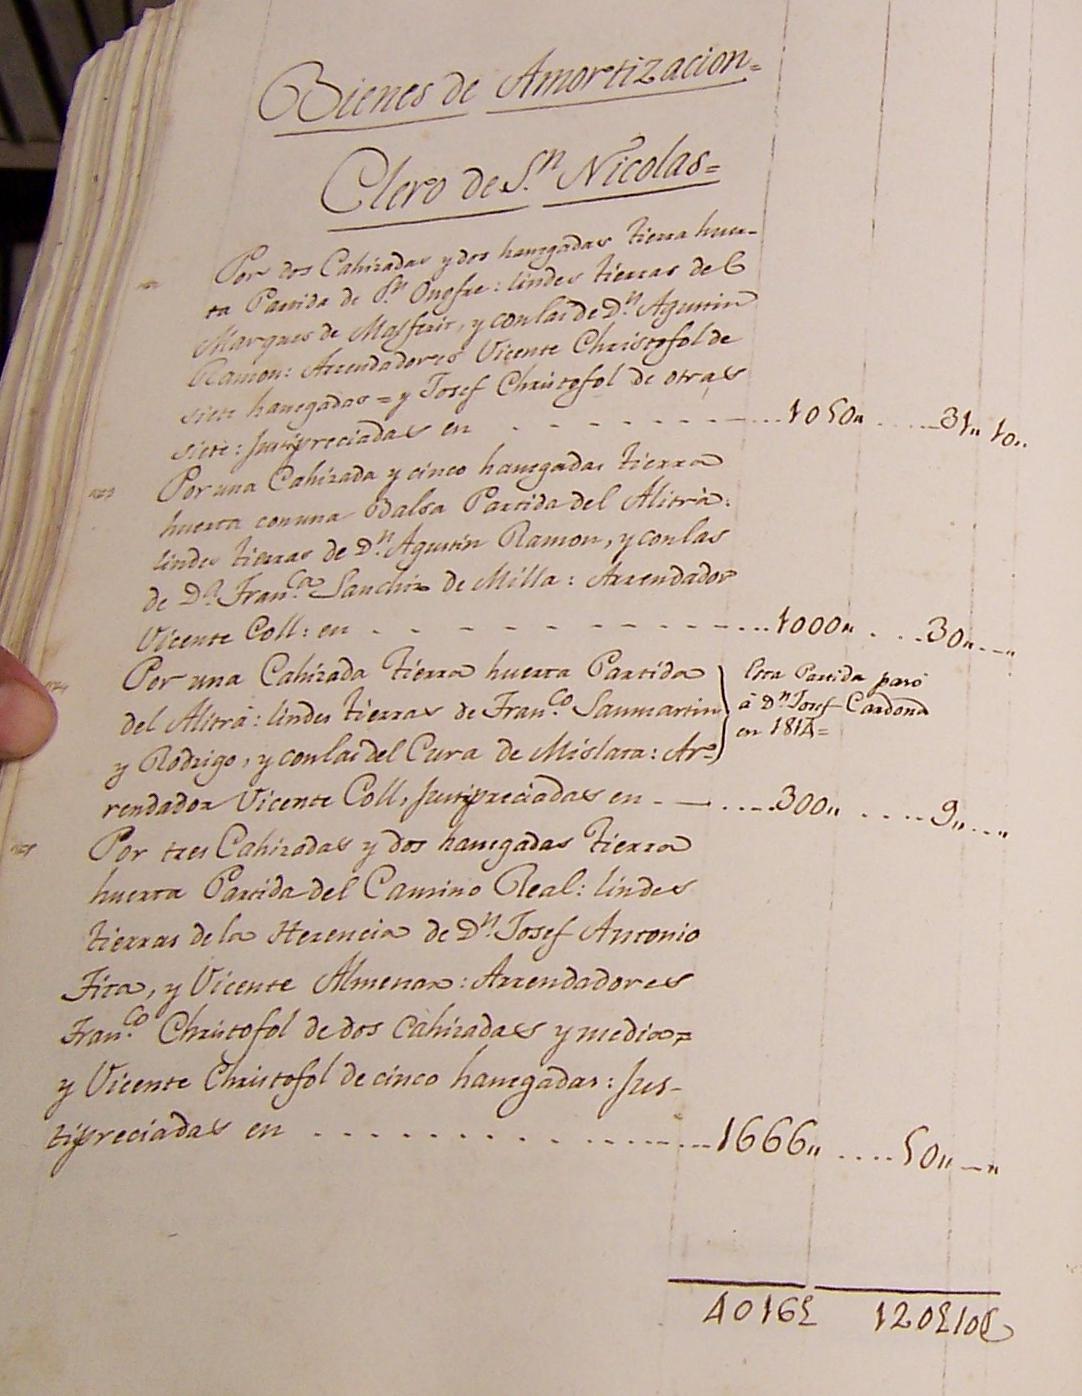 Bienes de Amortizacion=
Clero de S.n Nicolas=
Por dos Cahizadas y dos hanegadas tierra huer-
ta Partida de S.n Onofre: lindes tierras del
Marques de Malferit, y con las de D.n Agustin
Ramon: Arrendadores Vicente Christofol de
siete hanegadas = y Josef Christofol de otras
siete: Justipreciadas en - - - - - - - - ....1050,, .....31,, 10,,
Por una Cahizada y cinco hanegadas tierra
huerta con una Balsa Partida del Alitrá:
lindes tierras de D.n Agustin Ramon, y con las
de D.a Fran.ca Sanchiz de Milla: Arrendador
Vicente Coll: en . - - - - - - - - - ....1000,, . ...30,, ..--,,
Por una Cahizada tierra huerta Partida
del Alitrá: lindes tierras de Fran.co Sanmartin
y Rodrigo, y con las del Cura de Mislata: Ar=
rendador Vicente Coll, Justipreciadas en - — .....300,, .....9,, ...,,
Esta Partida pasó
á D.n Josef Cardona
en 1814=
Por tres Cahizadas y dos hanegadas tierra
huerta Partida del Camino Real: lindes
tierras de la Herencia de D.n Josef Antonio
Fita, y Vicente Almenar: Arrendadores
Fran.co Christofol de dos cahizadas y media=
y Vicente Christofol de cinco hanegadas: Jus-
tipreciadas en . . . . . . . . . . . . ....1666,, .....50,, —,,
4016£ 120£10